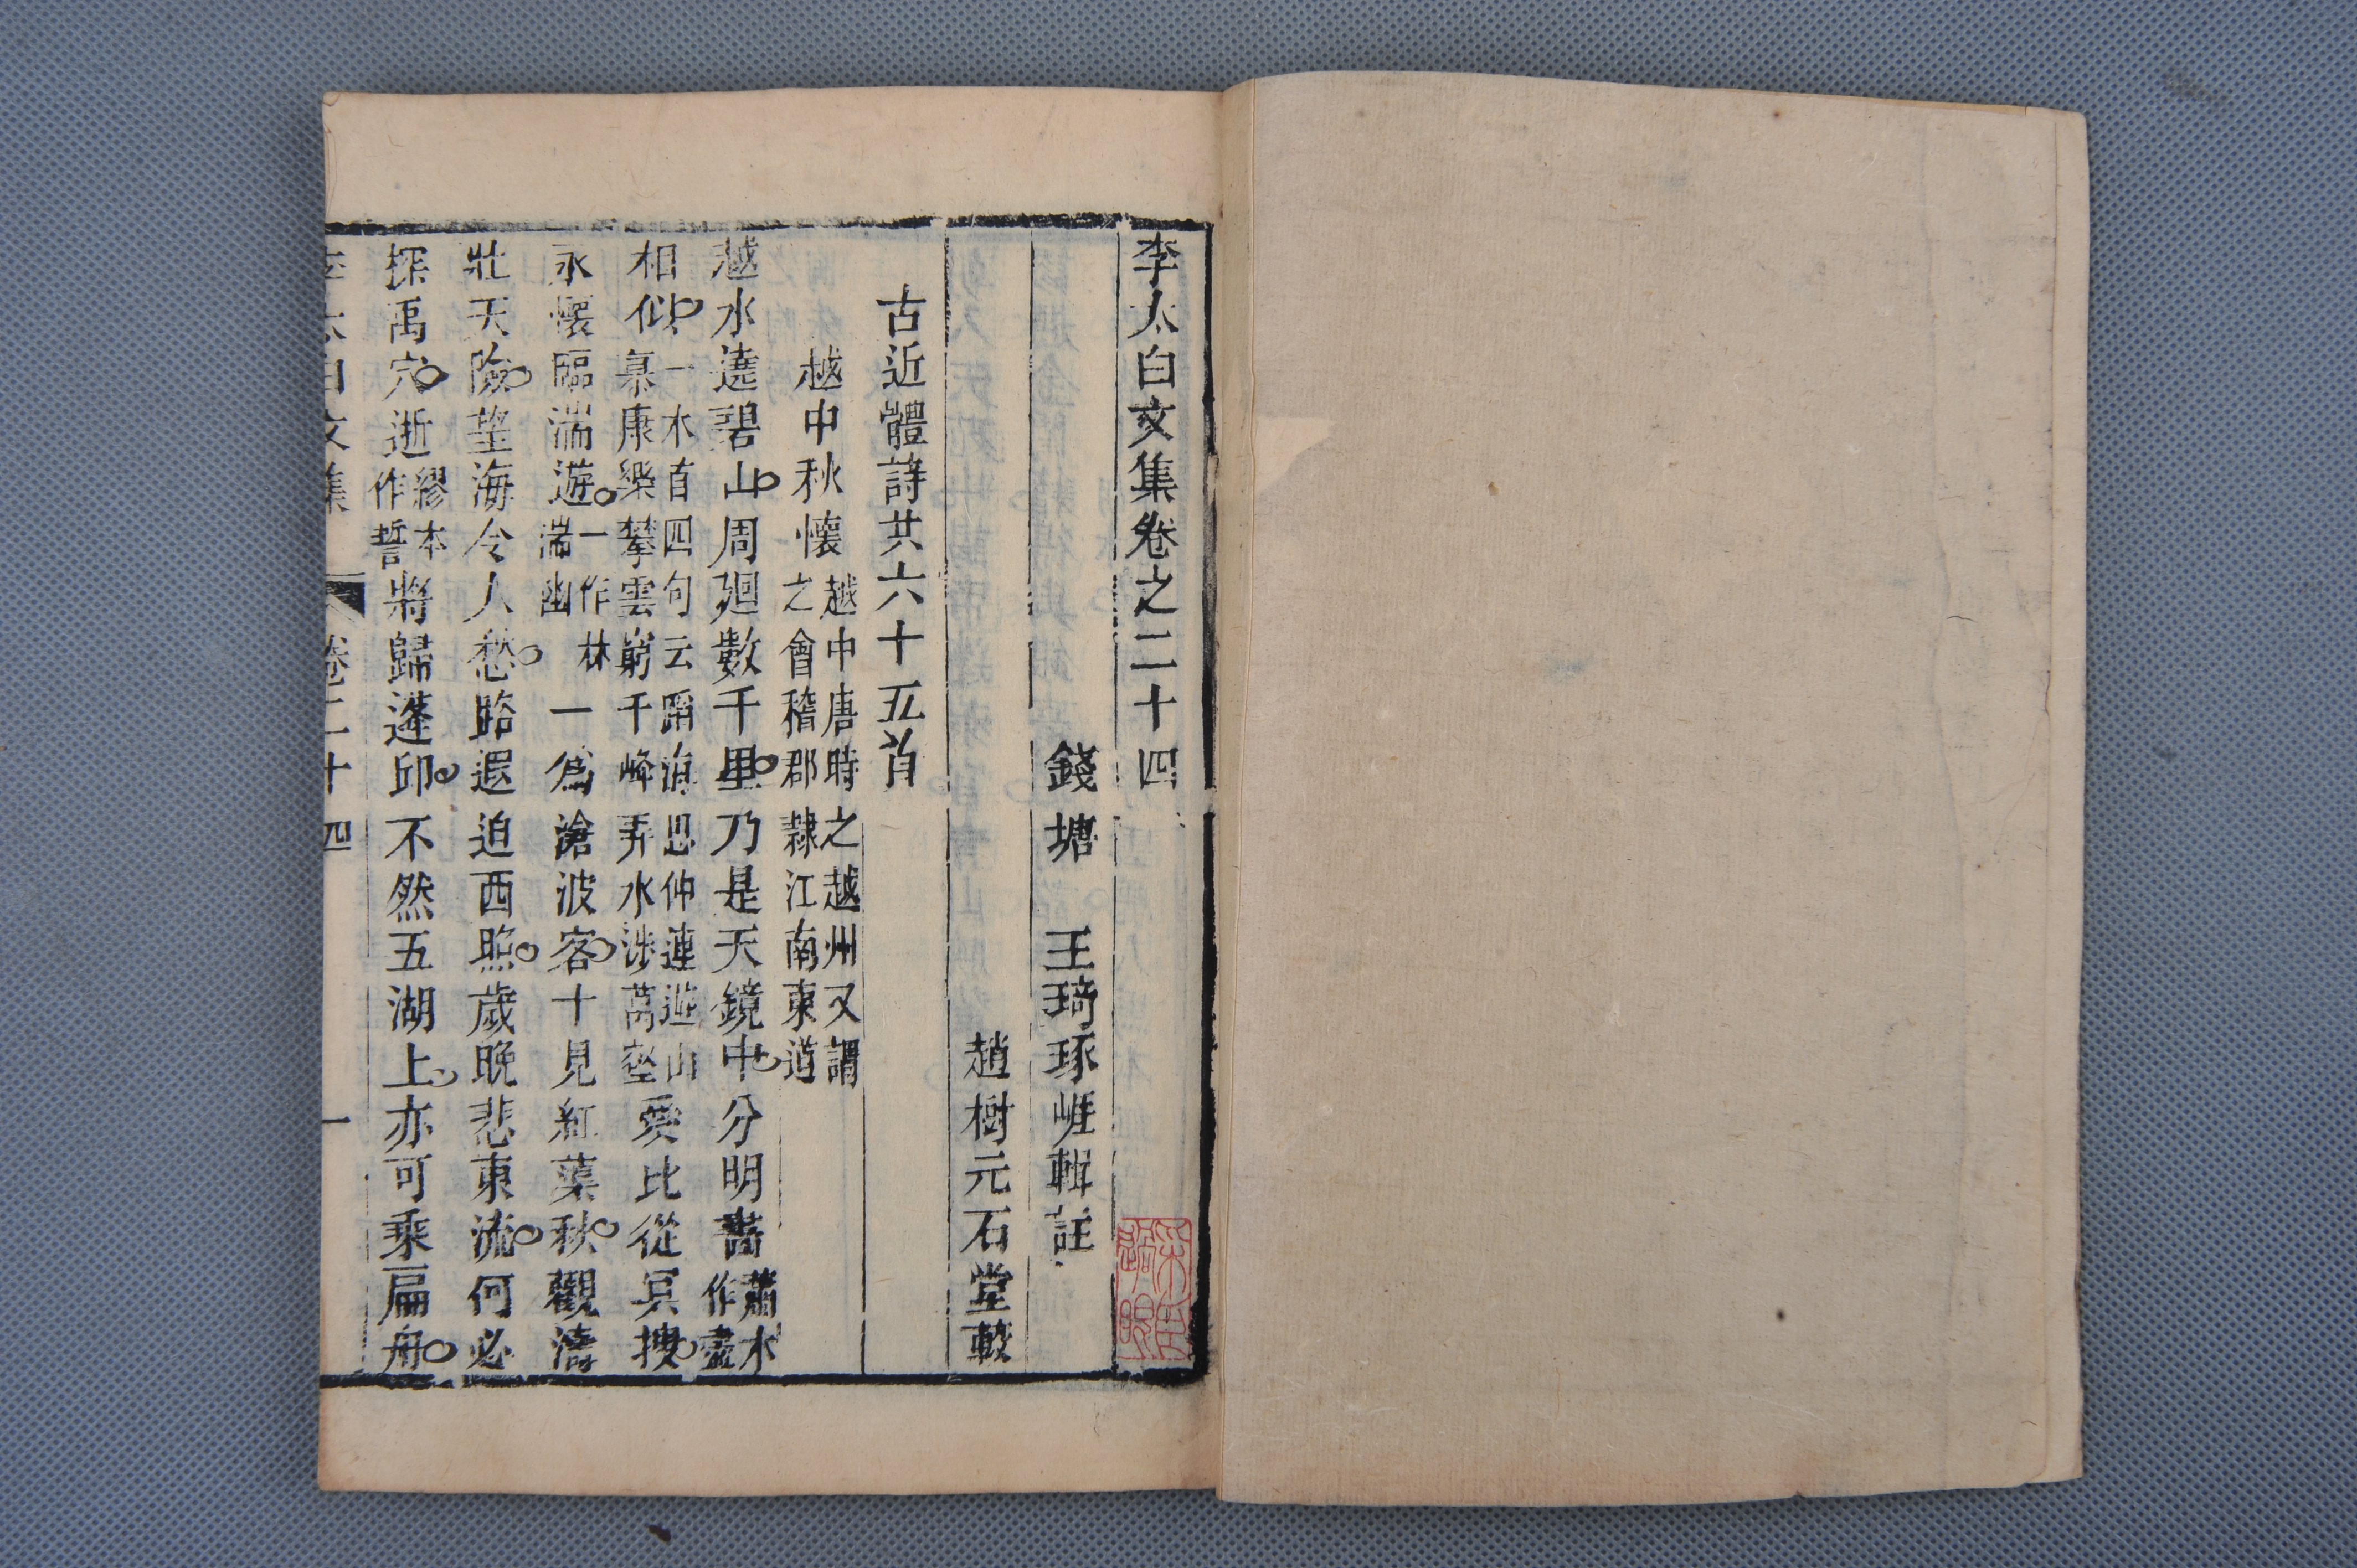 李太白文集卷之二十四
錢塘 王琦琢崖輯註
趙樹元石堂較
古近體詩共六十五首
越中秋懷越中唐時之越州又謂之會稽郡隸江南東道
越水遶碧山周廻數千里乃是天鏡中分明畵蕭本作盡
相似一本首四句云蹈海思仲連遊山慕康樂攀雲窮千峰弄水涉萬壑愛此從冥搜
永懷臨湍遊一作林湍幽一為滄波客十見紅葉秋觀濤
壯天險望海令人愁路遐迫西照歲晚悲東流何必
探禹穴逝繆本作誓將歸蓬邱不然五湖上亦可乘扁舟
李太白文集 卷二十四 一